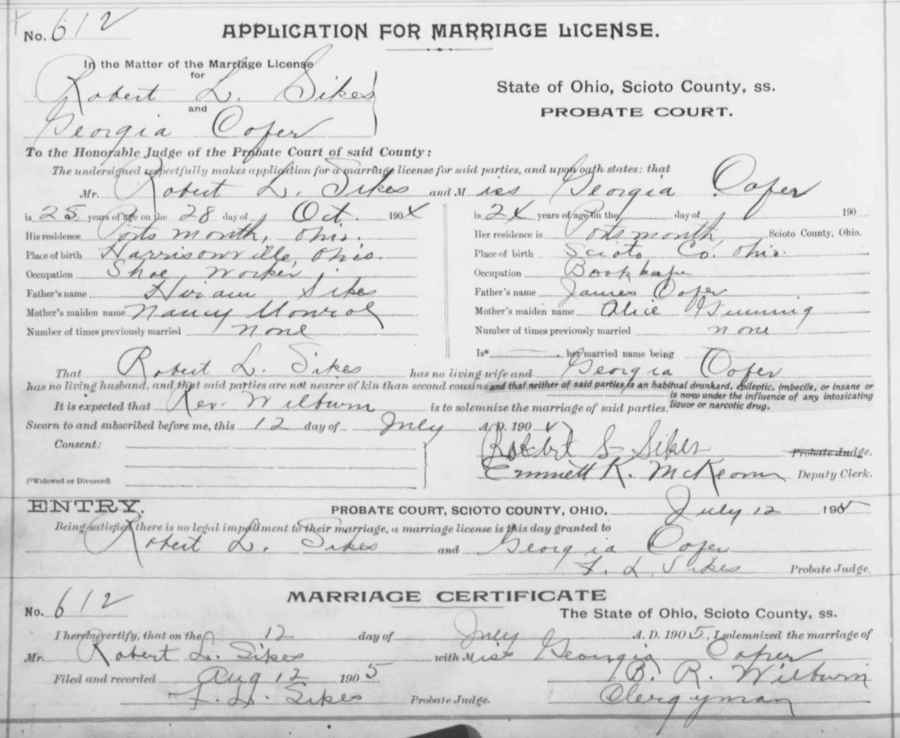 No. 612
APPLICATION FOR MARRIAGE LICENSE.
In the Matter of the Marriage License
for
Robert L. Sikes
and
Georgia Cofer
State of Ohio, Scioto County, ss.
PROBATE COURT.
To the Honorable Judge of the Probate Court of said County:
The undersigned respectfully makes application for a marriage license for said parties, and upon oath states: that
Mr. Robert L. Sikes and Miss Georgia Cofer
is 25 years of age on the 28 day of Oct. 1904
His residence Portsmouth, Ohio.
Place of birth Harrisonville, Ohio.
Occupation Shoe Worker
Father's name Hiram Sikes
Mother's maiden name Nancy Monroe
Number of times previously married none
is 24 years of age on the day of 190
Her residence is Portsmouth Scioto County, Ohio.
Place of birth Scioto Co. Ohio.
Occupation
Father's name James Cofer
Mother's maiden name Alice
Number of times previously married none
Is* her married name being
That Robert L. Sikes has no living wife and Georgia Cofer
has no living husband, and that said parties are not nearer of kin than second cousins and that neither of said parties is an habitual drunkard, epileptic, imbecile, or insane or
is now under the influence of any intoxicating
liquor or narcotic drug.
It is expected that Rev. Wilburn is to solemnize the marriage of said parties.
Sworn to and subscribed before me, this 12 day of July A.D. 190
Consent:
Robert L Sikes
Probate Judge.
Emmett K. McKeown Deputy Clerk.
(*Widowed or Divorced)
ENTRY.
PROBATE COURT, SCIOTO COUNTY, OHIO. July 12 1905
Being satisfied there is no legal impediment to their marriage, a marriage license is this day granted to
Robert L. Sikes and Georgia Cofer
F. L. Sikes Probate Judge.
MARRIAGE CERTIFICATE
No. 612
The State of Ohio, Scioto County, ss.
I hereby certify, that on the 12 day of July A.D. 1905, I solemnized the marriage of
Mr. Robert L. Sikes with Miss Georgia Cofer
Filed and recorded Aug 12 1905
B. R. Wilburn
F. L. Sikes Probate Judge.
Clergyman